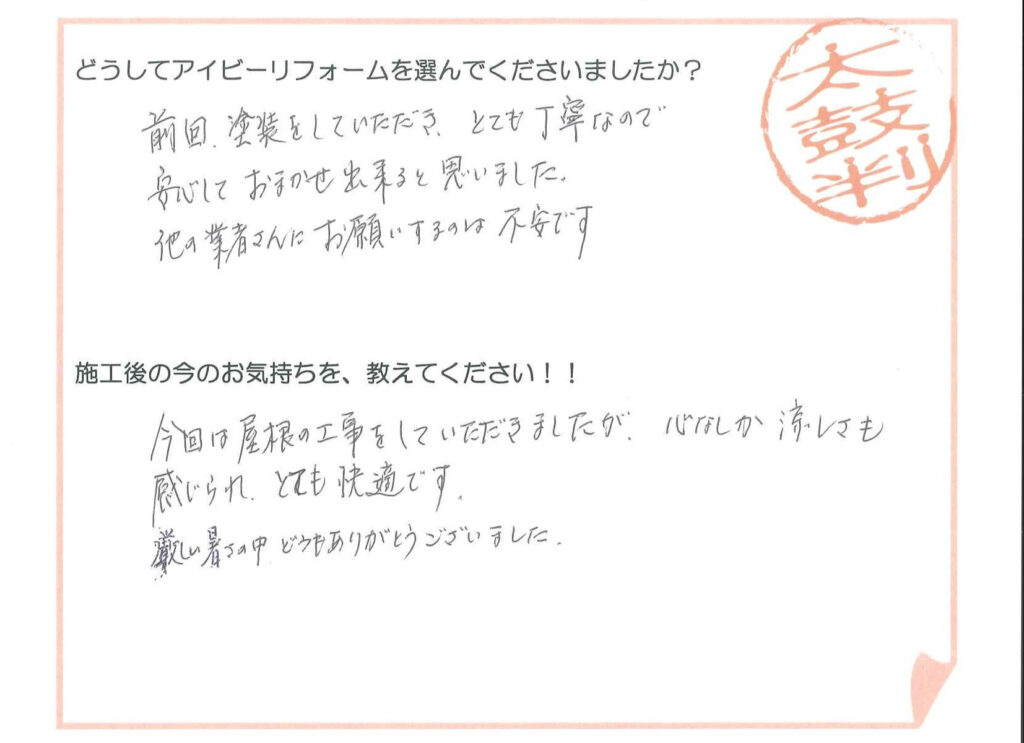 どうしてアイビーリフォームを選んでくださいましたか？
太鼓判
前回、塗装をしていただき、とても丁寧なので
安心しておまかせ出来ると思いました。
他の業者さんにお願いするのは不安です
施工後の今のお気持ちを、教えてください！！
今回は屋根の工事をしていただきましたが、心なしか涼しさも
感じられ、とても快適です。
厳しい暑さの中どうもありがとうございました。